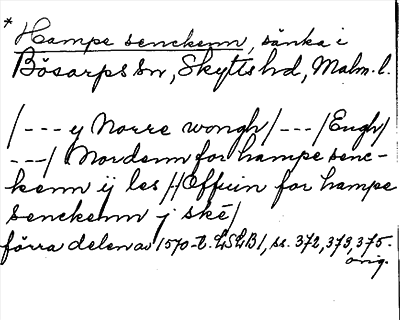 * Hampe senckenn, sänka i
Bösarps sn, Skytts hd, Malm. l.
/--- y Norre wongh/---/Eugh/
---/ Nordenn for hampe senc-
kenn ij les /-/ Offuin for hampe
senckenn j ské/
förra delen av 1570-t. LSLB1, ss. 372, 373, 375.
orig.